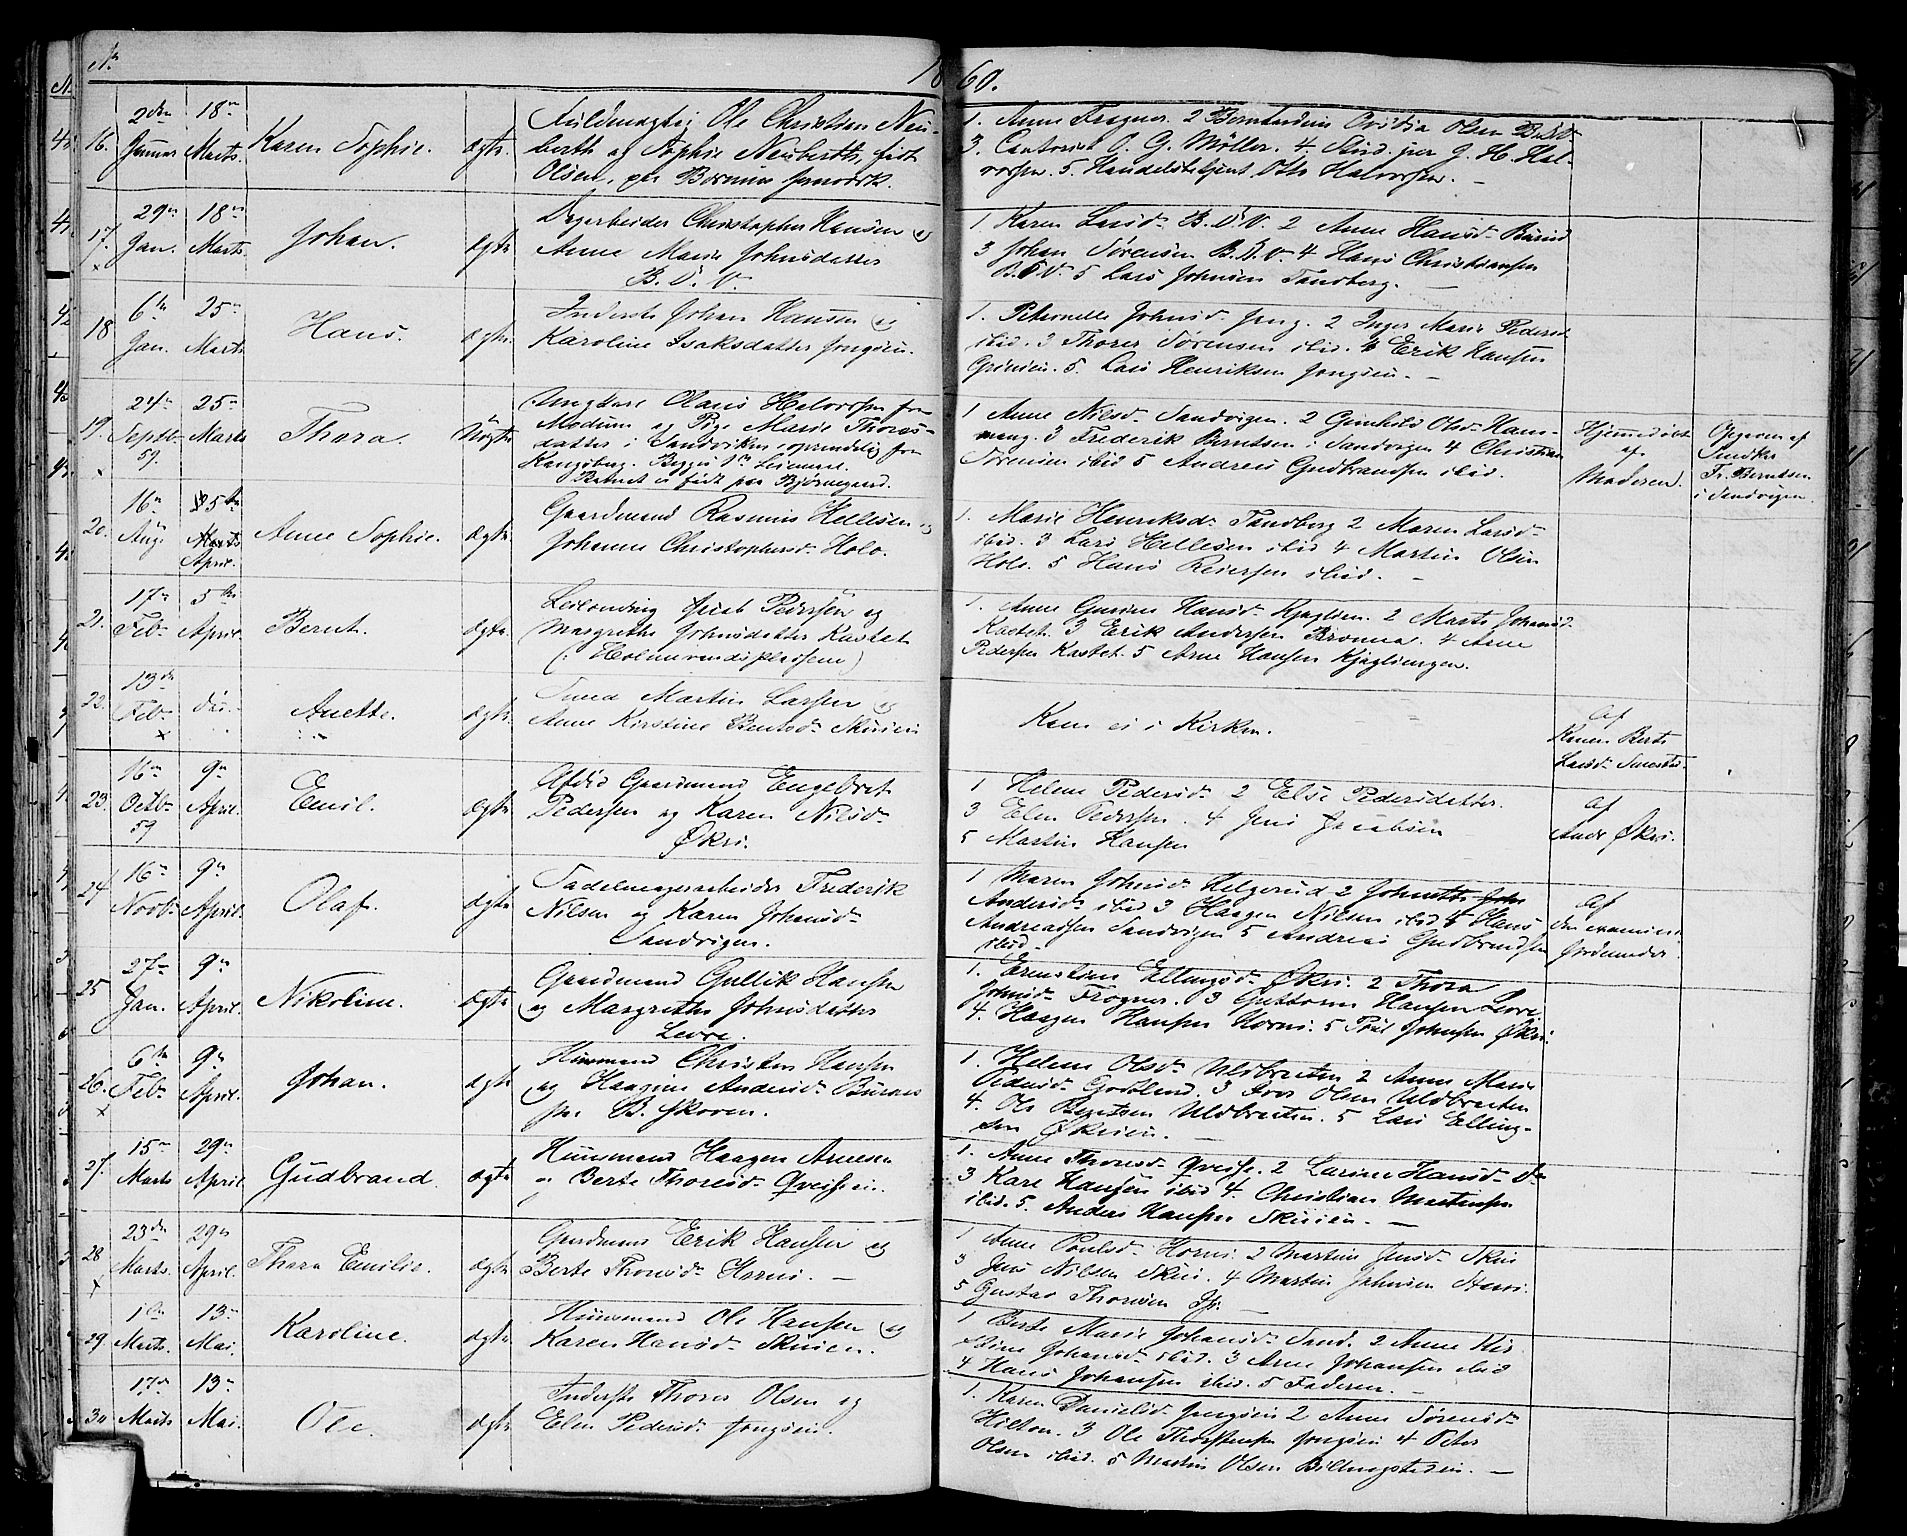 No 1860.
16. 2den Januar 18n Marts. Karen Sophie. ægte.
Fuldmægtig Ole Christian Neu-
berth og Sophie Neuberth, født
Olsen, paa Bærums Jernværk.
1. Anne Frogner. 2 Berntardine Ovidia Olsen
3. Cantorist O. G. Möller. 4. Stud. jur G. H. Hal-
vorsen. 5. Handelsbetjent Otto Halvorsen. —
17. x 29n Jan. 18n Marts Johan. ægte
Dagarbeider Christopher Hansen og
Anne Marie Johnsdatter
B. V.
1. Karen Larsd. B. V. 2 Anne Hansd. Bærum
3 Johan Sørensen B. V. 4 Hans Christiansen
B. V. 5 Lars Johnsen Tandberg. —
18 6te Jan. 25n Marts Hans. ægte.
Inderste Johan Hansen og
Karoline Isaksdatter Jongsein.
1. Petronelle Johnsd. Jong. 2 Inger Marie Pedersd.
ibid. 3 Thorer Sørensen ibid. 4 Erik Hansen
Grinien. 5. Lars Henriksen Jongsein. —
19. x 24n Septb. 59. 25n Marts Thora. Uægte
Ungkarl Olaus Halvorsen fra
Modum og Pige Marie Thores-
datter i Sandviken oprindelig fra
Kongsberg. Begges 1ste Leiermaal.
Barnet er født paa Bjørnegaard.
1 Anne Nilsd. Sandvigen. 2 Gunhild Olsd. Ham-
mang. 3 Frederik Berntsen i Sandvigen 4 Christian
Sørensen ibid 5 Andreas Gudbrandsen ibid.
Hjemmedøbt
af
Moderen.
Opgiven af
Fr. Berntsen
i Sandvigen.
20. 16n Aug. 5te Marts April. Anne Sophie. ægte
Gaardmand Rasmus Hellesen og
Johanne Christophersd. Holo.
1. Marie Henriksd. Tandberg 2 Maren Larsd.
ibid. 3 Lars Hellesen ibid 4 Martin Olsen
Holo. 5 Hans Reiersen ibid. —
21. 17n Feb. 5te April. Bernt. ægte.
Leilænding Jacob Pedersen og
Margrethe Johnsdatter Kastet
(: Holmsrendspladsene)
1. Anne Gurine Hansd. Kjaglien. 2 Marte Johansd.
Kastet. 3 Erik Andersen Bronna. 4 Arne
Pedersen Kastet. 5 Arne Hansen Kjaglingen.
22. 13de Feb. x do. Anette. ægte.
Smed Martin Larsen og
Anne Kirstine Berntsd. Skuien
Kom ei i Kirken.
af
Konen Berte
Larsd.
23. 16n Octb. 59 9n April. Emil. ægte
Afdød Gaardmand Engebret
Pedersen og Karen Nilsd.
Økri.
1 Helene Pedersd. 2 Else Pedersdatter.
3 Elen Pedersen. 4 Jens Jacobsen
5 Martin Hansen
af
Økri.
24 16n Novb. 9n April. Olaf. ægte
Sadelmagerarbeider Frederik
Nilsen og Karen Johansd.
Sandvigen.
1 Maren Johnsd. Helgerud 2 Johnette John
Andersd. ibid 3 Haagen Nilsen ibid 4 Hans
Andreassen Sandvigen 5 Andreas Gudbrandsen
ibid.
af
den examinerte
Jordemoder.
25 27n Jan. 9n April. Nikoline. ægte
Gaardmand Gullik Hansen
og Margrethe Johnsdatter
Levre.
1. Ernstine Ellingsd. Økri. 2 Thora
Johnsd. Frogner. 3 Guttorm Hansen Levre
4. Haagen Hansen Horni. 5 Poul Johnsen Økri.
26. x 6te Feb. 9n April. Johan. ægte
Huusmand Christen Hansen
og Haagine Andersd. Bærums
B. Skoven.
1. Helene Olsd. Uldbraaten 2 Anne Marie
Pedersd. Godthend. 3 Iver Olsen Uldbraaten
4. Ole Berntsen Uldbraaten. 5 Lars Elling-
sen Økrien. —
27. 15n Marts 29n April Gudbrand. ægte
Huusmand Haagen Arnesen
og Berte Thoresd. Qveissein.
1. Anne Thoresd. Qveisse. 2 Larine Hansd. do
3 Kari Hansen ibid 4. Christian Martinsen
ibid. 5. Anders Hansen Skuien. —
28 x 23de Marts. 29n April. Thora Emilie. ægte
Gaardmand Erik Hansen og
Berte Thoresd. Horni. —
1 Anne Poulsd. Horni. 2 Martine Jensd. Skui
3 Jens Nilsen Skui. 4 Martin Johnsen
5 Gustav Thoresen —
29. 1ste Marts. 13n Mai. Karoline. ægte
Huusmand Ole Hansen og
Karen Hansd. Skuien.
1 Berte Marie Johansd. Sand. 2 Anne Kir-
stine Johansd. ibid. 3 Arne Johansen ibid
4 Hans Johansen ibid. 5 Faderen. —
30 17n Marts 13n Mai. Ole. ægte
Inderste Thorer Olsen og
Elen Pedersd. Jongsein.
1. Karen Danielsd. Jongsein 2 Anne Sørensd.
Hilton. 3 Ole Thorstensen Jongsein 4 Peter
Olsen ibid. 5 Martin Olsen Billingstadein. —